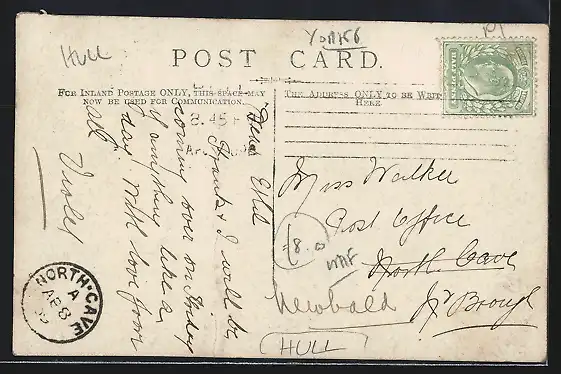 HULL
YORKS
POST CARD.
FOR INLAND POSTAGE ONLY, THIS SPACE MAY
NOW BE USED FOR COMMUNICATION.
THE ADDRESS ONLY TO BE WRIT
HERE.
8.45 P
Dear Ethel
Frank & I will be
coming over on Friday
if anything like a
day. With love from
all
Violet
Miss Walker
Post Office
North Cave
Newbald
Nr Brough
HULL
8.0
NORTH·CAVE
A
AP 8